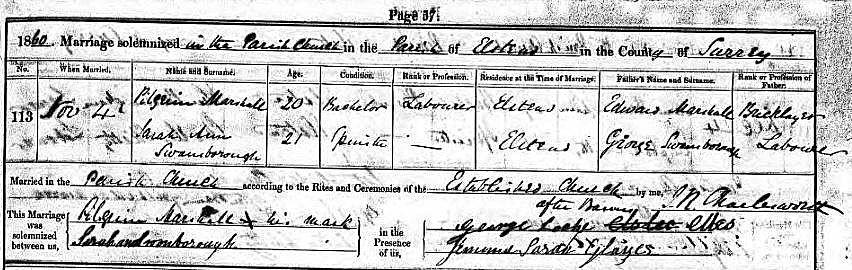 Page 57.
1860. Marriage solemnized in the Parish Church in the Parish of Elstead in the County of Surrey
No. When Married. Name and Surname. Age. Condition. Rank or Profession. Residence at the Time of Marriage. Father's Name and Surname. Rank or Profession of Father.
113 Nov 4 Pilgrim Marshall 20 Bachelor Labourer Elstead Edward Marshall Bricklayer
Sarah Ann Swanborough 21 Spinster — Elstead George Swanborough Labourer
Married in the Parish Church according to the Rites and Ceremonies of the Established Church by me,
after Banns J N Charlesworth
This Marriage was solemnized between us, Pilgrim Marshall X his mark in the Presence of us, George
Sarah Jemima Sarah